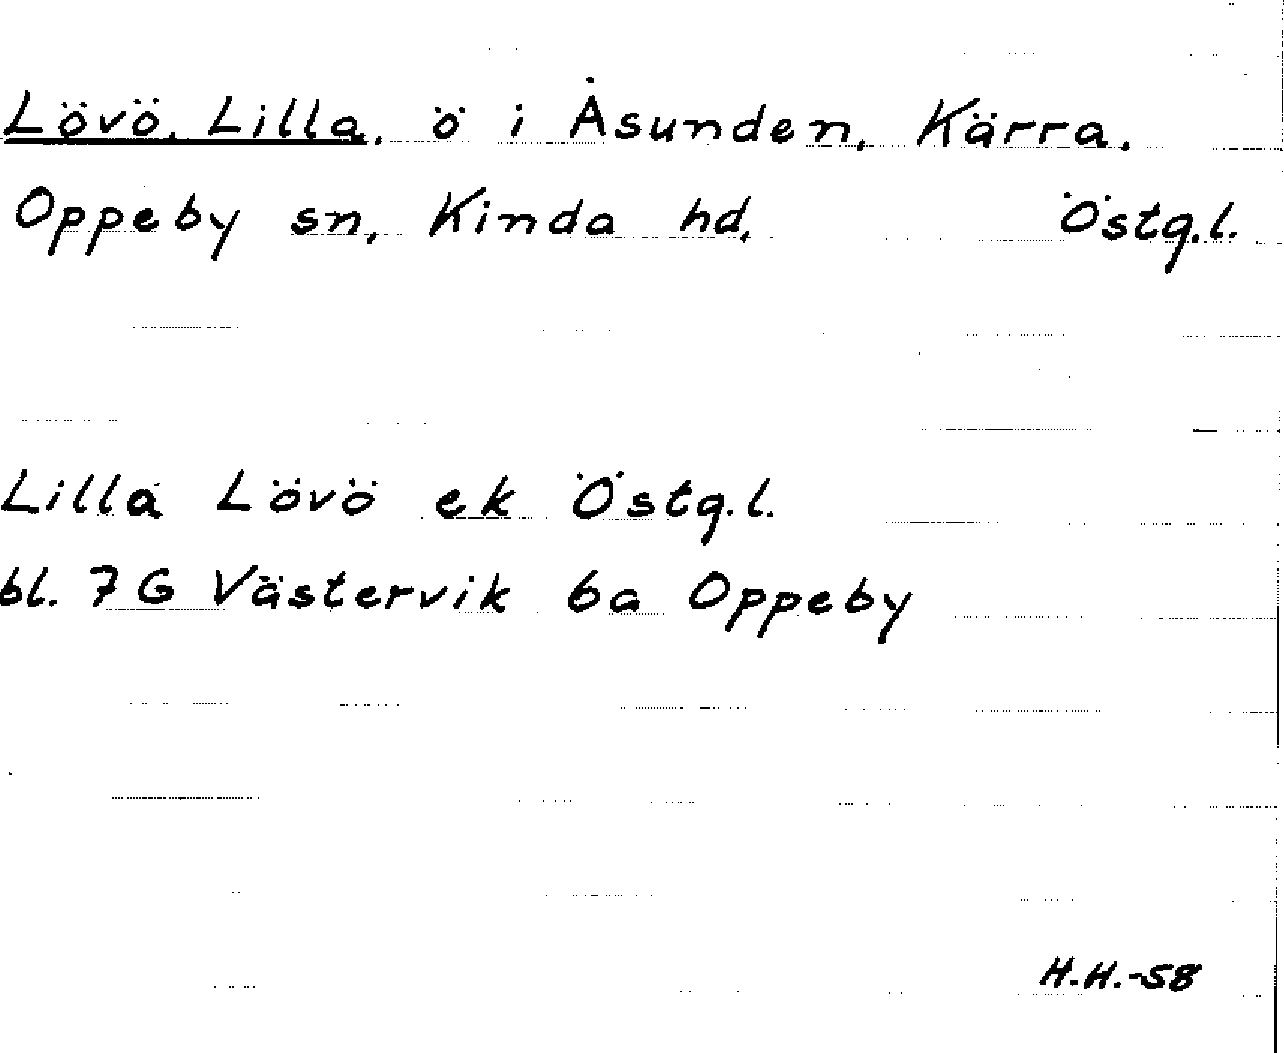 Lövö, Lilla, ö i Åsunden, Kärra,
Oppeby sn, Kinda hd, Östg.l.
Lilla Lövö ek Östg.l.
bl. 7 G Västervik 6a Oppeby
H.H.-58